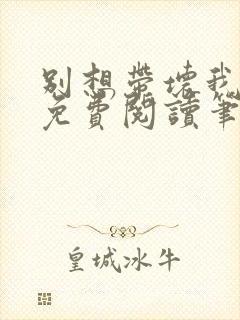 別想帶壞我
免費閱讀筆
皇城冰牛